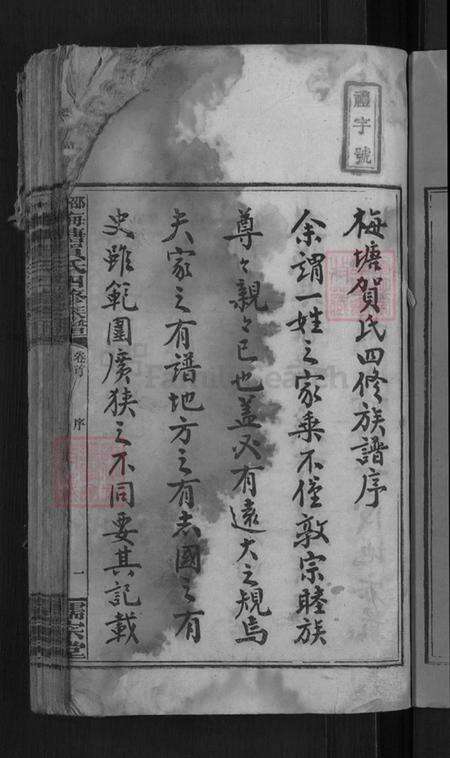 禮字號
梅塘賀氏四修族譜序
余謂一姓之家乘不僅敦宗睦族
尊々親々已也盖必有遠大之規焉
夫家之有譜地方之有志國之有
史雖範圍廣狹之不同要其記載
梅塘賀氏四修族譜
卷首
序
一
儒宗堂